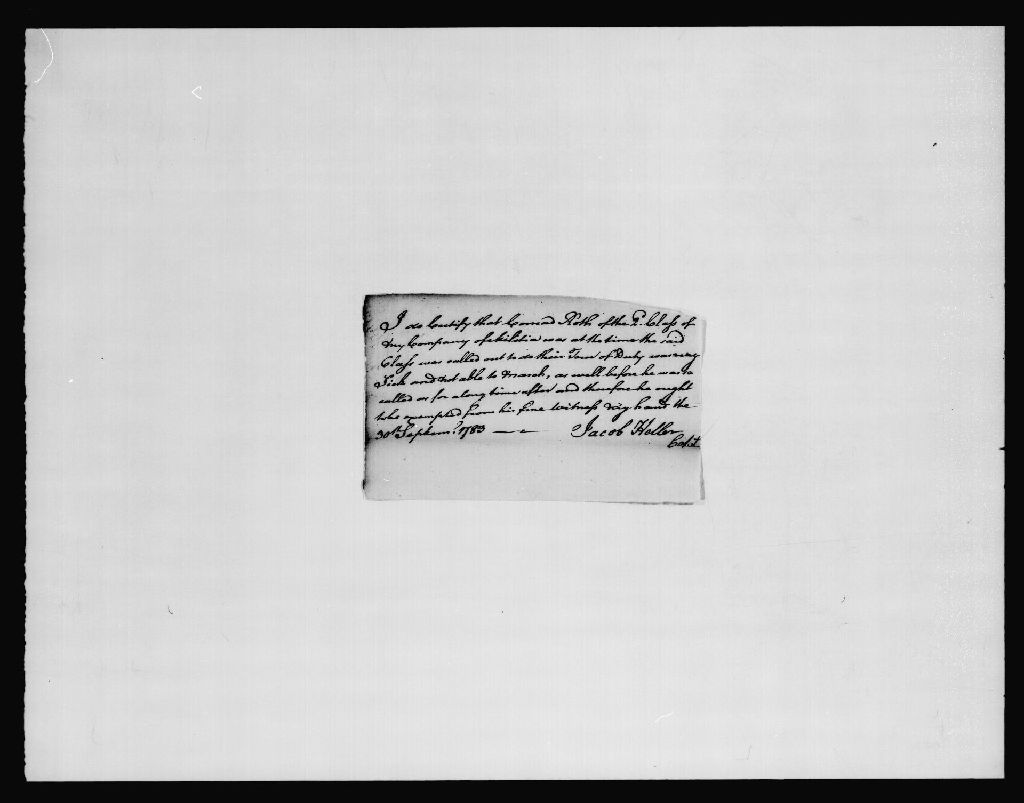 I do Certify that Conrad Roth of the Class of
my Company of Militia was at the time the said
Class was called out to do their Tour of Duty was very
Sick and not able to March, as well before he was
called as for a long time after and therefore he ought
to be exempted from his fine Witness my hand the
30th Septemr. 1783 Jacob Heller
Capt